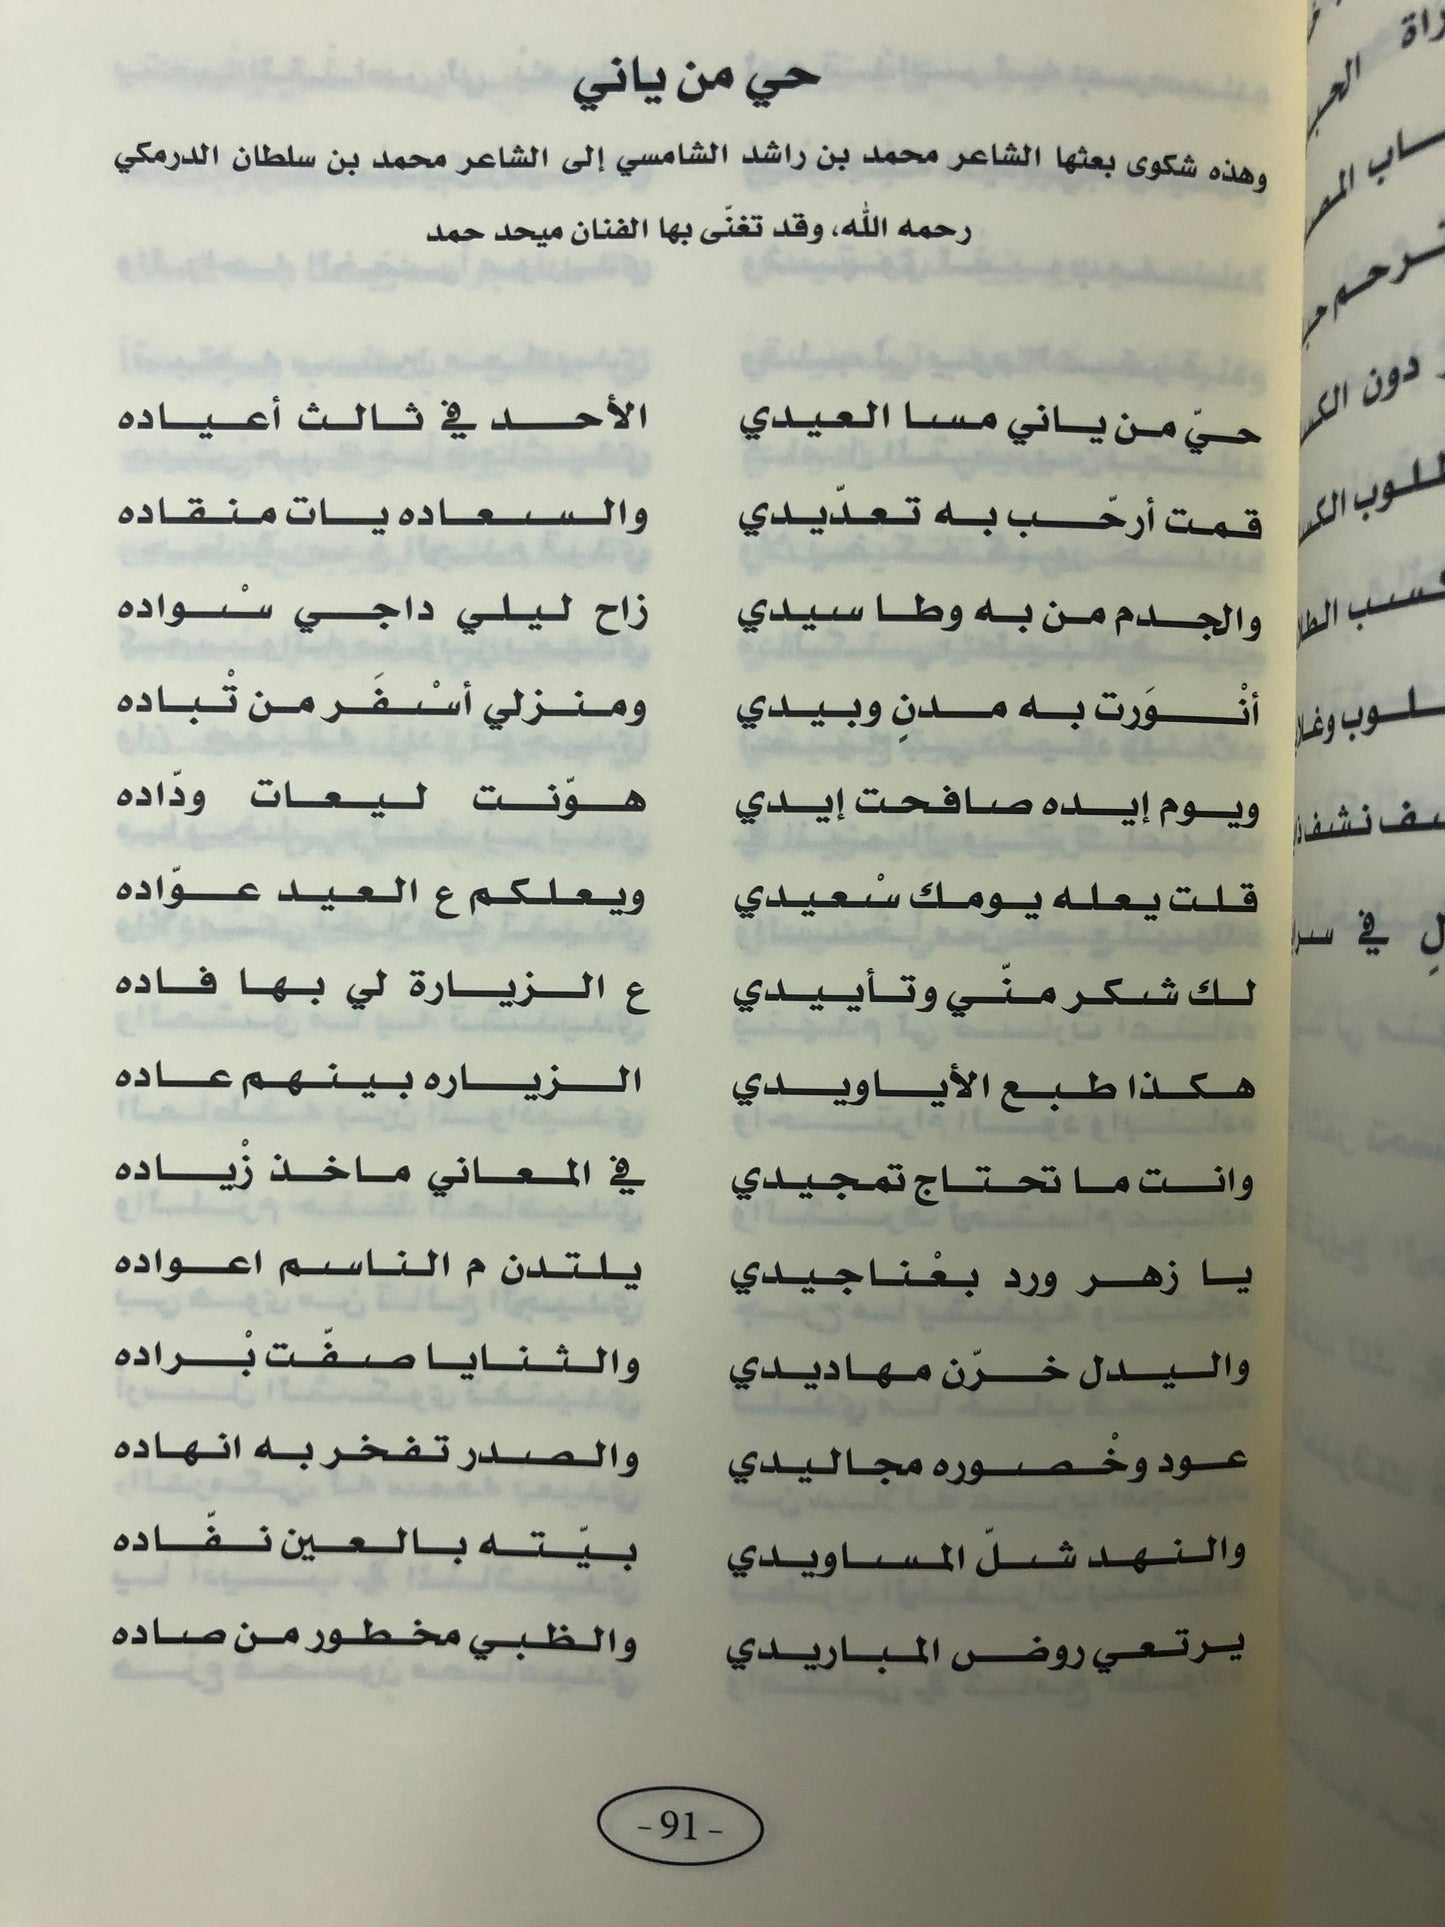 حي من ياني
وهذه شكوى بعثها الشاعر محمد بن راشد الشامسي إلى الشاعر محمد بن سلطان الدرمكي
رحمه الله، وقد تغنّى بها الفنان ميحد حمد
حيّ من ياني مسا العيدي الأحد في ثالث أعياده
قمت أرحّب به تعدّيدي والسعاده يات منقاده
والجدم من به وطا سيدي زاح ليلي داجي سْواده
أنْوَرت به مدنٍ وبيدي ومنزلي أسْفَر من تْباده
ويوم إيده صافحت إيدي هوّنت ليعات ودّاده
قلت يعله يومك سْعيدي ويعلكم ع العيد عوّاده
لك شكر منّي وتأييدي ع الزيارة لي بها فاده
هكذا طبع الأياويدي الزياره بينهم عاده
وانت ما تحتاج تمجيدي في المعاني ماخذ زْياده
يا زهر ورد بغْناجيدي يلتدن م الناسم اعواده
واليدل خرّن مهاديدي والثنايا صفّت بْراده
عود وخْصوره مجاليدي والصدر تفخر به انهاده
والنهد شلّ المساويدي بيّته بالعين نفّاده
يرتعي روض المباريدي والظبي مخطور من صاده
- 91 -
العر
دون
في